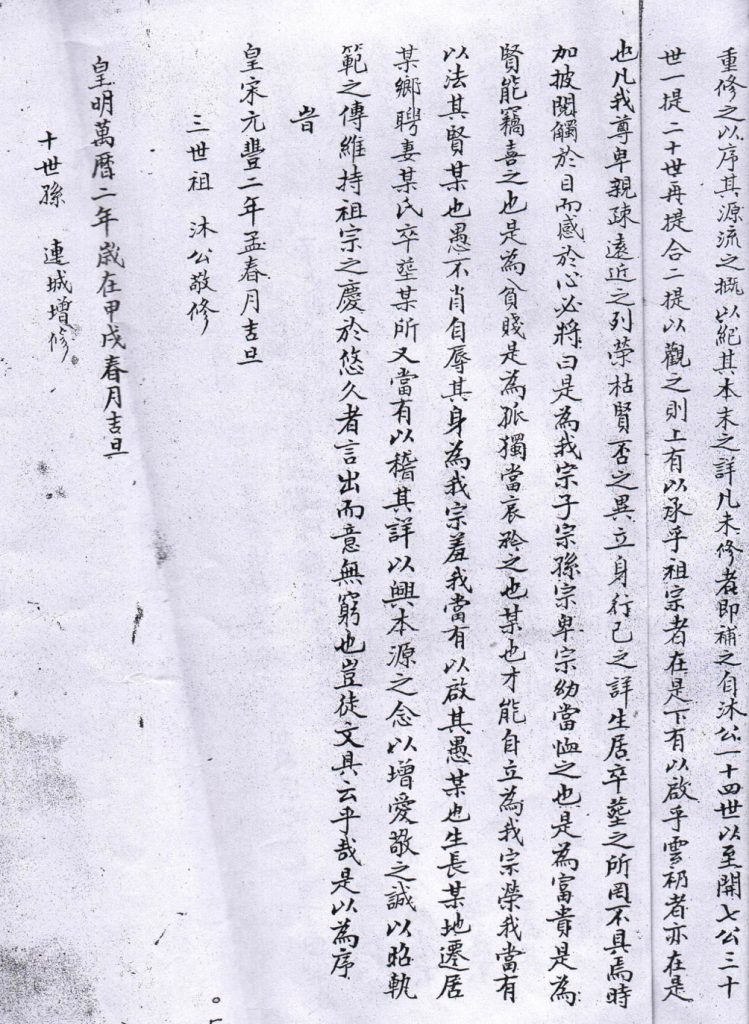 重修之以序其源流之摡以紀其本末之詳凡未修者即補之自沐公一十四世以至開七公三十
世一提二十世再提合二提以觀之則上有以承乎祖宗者在是下有以啟乎雲礽者亦在是
也凡我尊卑親疎遠近之列榮枯賢否之異立身行己之詳生居卒塟之所罔不具焉時
加披閱觸於目而感於心必將曰是為我宗子宗孫宗卑宗幼當恤之也是為富貴是為
賢能竊喜之也是為貧賤是為孤獨當哀矜之也某也才能自立為我宗榮我當有
以法其賢某也愚不肖自辱其身為我宗羞我當有以啟其愚某也生長某地遷居
某鄉聘妻某氏卒塟某所又當有以稽其詳以興本源之念以增愛敬之誠以昭軌
範之傳維持祖宗之慶於悠久者言出而意無窮也豈徒文具云乎哉是以為序
旹
皇宋元豐二年孟春月吉旦
三世祖 沐公敬修
皇明萬曆二年歲在甲戌春月吉旦
十世孫 連城增修